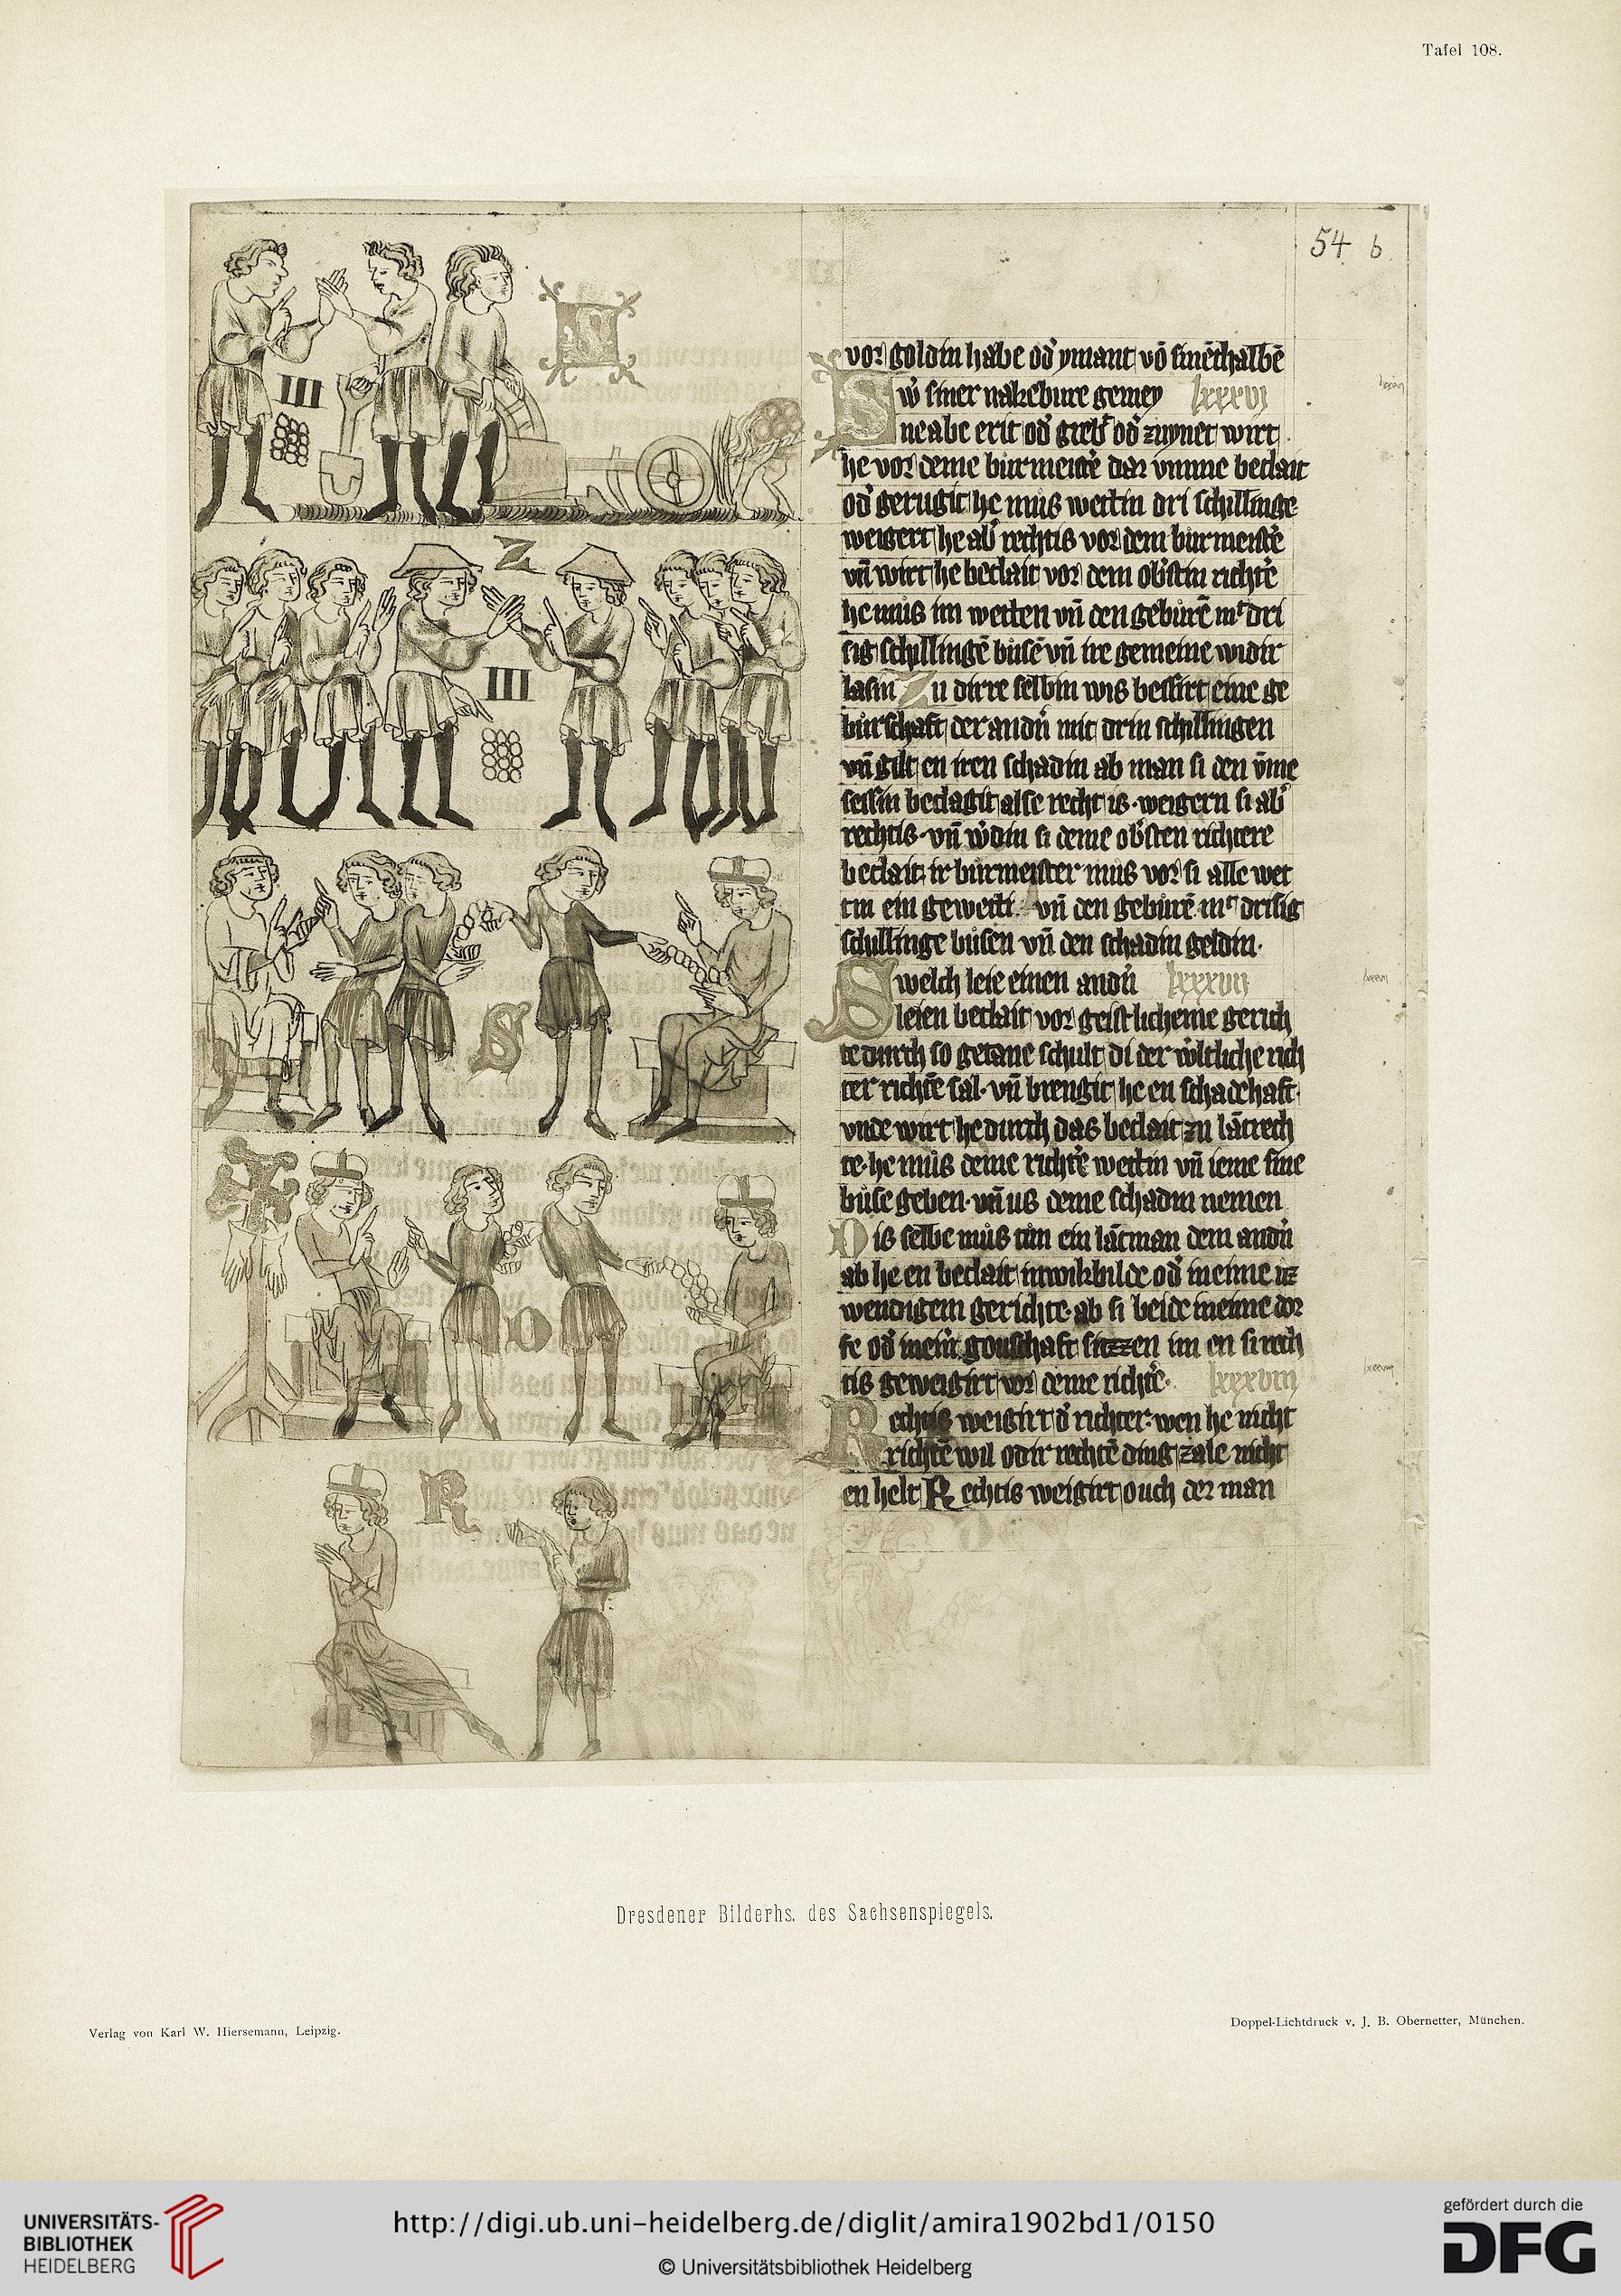 Tafel 108.
54 b
vor goldin habe od' ymant vō sinēthalbē
Sw' siner nakebure gemey lxxxvi
ne abe erit od' grebt od' zuynet wirt
he vor deme burmeist'e dar umme beclait
od' gerugit he mus wettin dri schillinge
weigert he ab' rechtis vor dem burmeist'e
vn̄ wirt he beclait vor dem obistin richt'e
he mus im wetten vn̄ den geburē mit dri
sig schillingē busē vn̄ ire gemeine widir
lasin Zu dirre selbin wis bessirt eine ge
burschaft der andn̄ mit drin schillingen
vn̄ gilt en iren schadin ab man si den ūme
sessin beclagit alse recht is · weigern si ab'
rechtis · vn̄ w'din si deme obisten richtere
beclait ir burmeister mus vor si alle wet
tin ein gewette vn̄ den geburē mit drisig
schillinge busen vn̄ den schadin geldin ·
Swelch leie einen andn̄ lxxxvii
leien beclait vor geistlicheme gerich
te durch so getane schult di der w'ltliche rich
ter richtē sal · vn̄ brengit he en schadehaft ·
vnde wirt he durch das beclait zu lātrech
te · he mus deme richt'e wettin vn̄ ieme sine
buse geben · vn̄ us deme schadin nemen
Dis selbe mus tun ein lātman dem andn̄
ab he en beclait in wikbilde od' in eime uz
wendigem gerichte · ab si beide in eime dor
fe od' in ein' gouschaft sitzzen im en si rech
tis geweigirt vor deme richt'e · lxxxviii
Rechtis weigirt d' richter · wen he nicht
richtē wil odir rechtē dingzale nicht
en helt Rechtis weigirt ouch der man
S
III
Z
III
S
D
R
Dresdener Bilderhs. des Sachsenspiegels.
Verlag von Karl W. Hiersemann, Leipzig.
Doppel-Lichtdruck v. J. B. Obernetter, München.
UNIVERSITÄTS-
BIBLIOTHEK
HEIDELBERG
http://digi.ub.uni-heidelberg.de/diglit/amira1902bd1/0150
© Universitätsbibliothek Heidelberg
gefördert durch die
DFG